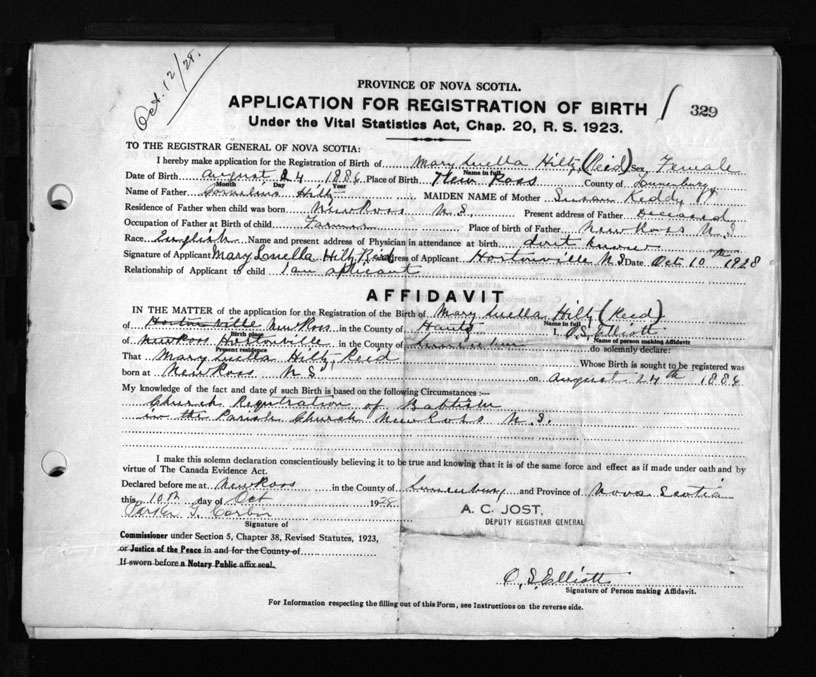 Oct. 12/28.
PROVINCE OF NOVA SCOTIA.
APPLICATION FOR REGISTRATION OF BIRTH 329
Under the Vital Statistics Act, Chap. 20, R. S. 1923.
TO THE REGISTRAR GENERAL OF NOVA SCOTIA:
I hereby make application for the Registration of Birth of Mary Luella Hiltz (Reid) Sex Female
Name in full
Date of Birth august 24 1886 Place of Birth New Ross County of Lunenburg
Month Day Year
Name of Father Cornelius Hiltz MAIDEN NAME of Mother Susan Keddy
Residence of Father when child was born New Ross N.S. Present address of Father Deceased
Occupation of Father at Birth of child Farmer Place of birth of Father New Ross N.S
Race English Name and present address of Physician in attendance at birth dont know
Signature of Applicant Mary Louella Hiltz Reid Address of Applicant Hortonville N.S Date Oct 10th 1928
Relationship of Applicant to child I am aplicant
AFFIDAVIT
IN THE MATTER of the application for the Registration of the Birth of Mary Luella Hiltz (Reid)
Name in full
of Hortonville New Ross in the County of Hants I, O.S. Elliott
Birth place Name of person making Affidavit
of New Ross Hortonville in the County of do solemnly declare:
Present residence
That Mary Luella Hiltz, Reid Whose Birth is sought to be registered was
born at New Ross N.S on august 24th 1886
My knowledge of the fact and date of such Birth is based on the following Circumstances :—
Church Registration of Baptism
in the Parish Church New Ross N.S.
I make this solemn declaration conscientiously believing it to be true and knowing that it is of the same force and effect as if made under oath and by
virtue of The Canada Evidence Act.
Declared before me at New Ross in the County of Lunenburg and Province of Nova Scotia
this 10th day of Oct 1928
A. C. JOST,
DEPUTY REGISTRAR GENERAL
Signature of
Commissioner under Section 5, Chapter 38, Revised Statutes, 1923,
or Justice of the Peace in and for the County of
If sworn before a Notary Public affix seal.
O. S. Elliott
Signature of Person making Affidavit.
For Information respecting the filling out of this Form, see Instructions on the reverse side.